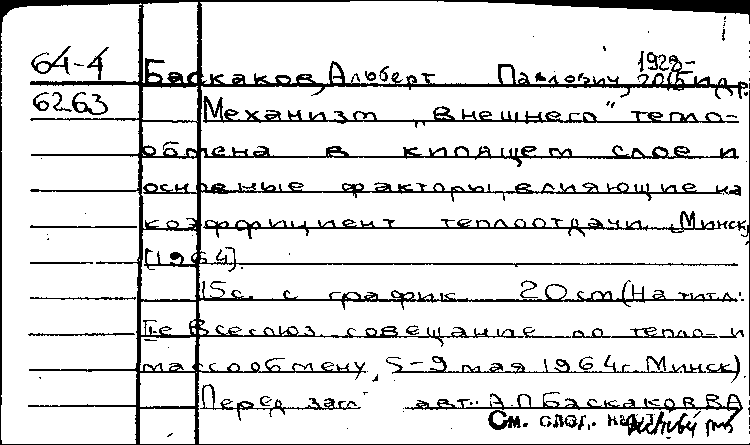 64-4 Баскаков, Альберт Павлович, 1928-2015 и др.
6263 Механизм „внешнего" тепло-
обмена в кипящем слое и
основные факторы, влияющие на
коэффициент теплоотдачи. Минск,
[1964].
15с. с график 20 cm (На титл:
II-е Всесоюз. совещание по тепло- и
массообмену, 5-9 мая 1964г. Минск)
Перед загл авт: А.П Баскаков, В.А
См. след. на